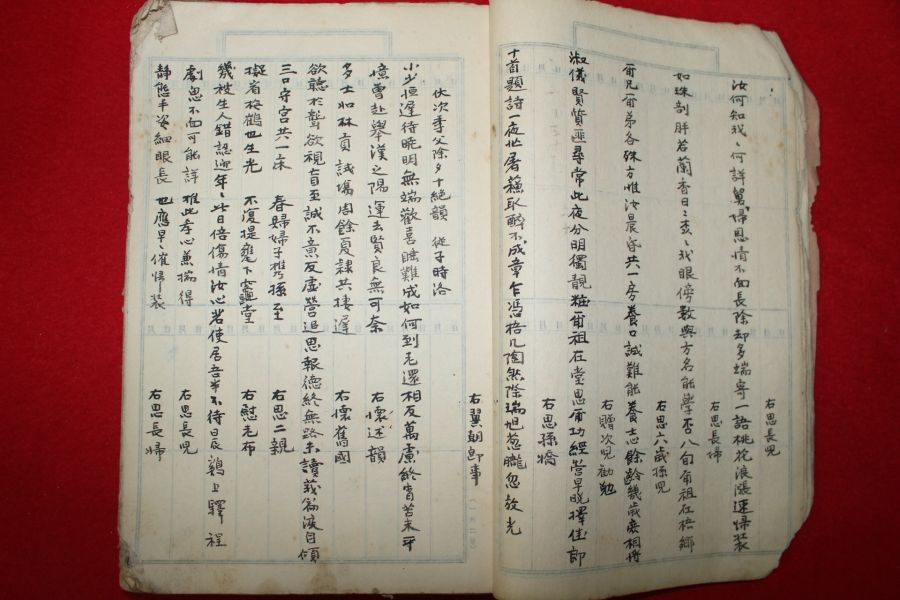 汝何知我、何詳舅婦恩情不面長除却多端寄一語桃花浪漲速歸裝
右思長兒
如珠剖胖若蘭香日日森、我眼傍數與方名能學否八旬爾祖在梧鄉
右思長婦
爾兄爾弟各殊方惟汝晨昏共一房養口誠難能養志餘齡幾歲庶相將
右思六歲孫兒
淑儀賢質 尋常此夜分明獨靚粧爾祖在堂思爾切經營早晩擇佳郎
右贈次兒勸勉
十首題詩一夜忙屠蘇取醉不成章 憑格几陶然際瑞旭葱朧忽放光
右思孫嬌
右翼朝卽事
伏次季父除夕十絶韻 從子時洛
少小恒遲待曉明無端歡喜睡難成如何到老還相反萬慮終宵苦未平
憶曾赴擧漢之陽運去賢良無可奈 右懷述韻
多士如林貢 試場周餘夏隷共棲遲 右懷舊國
欲聽於聾欲視盲至誠不意反虛營追思報德終無路未讀莪篇淚自傾
三口守宮共一床 春婦婦子携孫至 右思二親
擬省梅鶴也生光 不復提甕下竈堂 右慰老布
幾被生人錯認迎年、此日倍傷情汝心若使居吾半不待晨鷄上驛程
劇思不面可能詳 惟此孝心兼端得 右思長兒
靜態手姿細眼長 也應早、催歸裝 右思長婦